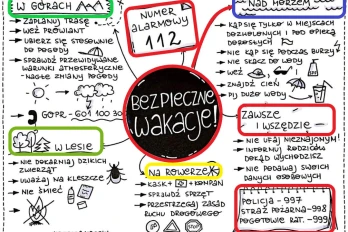 W GÓRACH
→ ZAPLANUJ TRASĘ
→ WEŹ PROWIANT
→ UBIERZ SIĘ STOSOWNIE
DO POGODY
→ SPRAWDŹ PRZEWIDYWANE
WARUNKI ATMOSFERYCZNE
- NAGŁE ZMIANY POGODY
GOPR - 601 100 30
W LESIE
→ NIE DOKARMIAJ DZIKICH
ZWIERZĄT
→ UWAŻAJ NA KLESZCZE
→ NIE ŚMIEĆ
NUMER
ALARMOWY
112
BEZPIECZNE
WAKACJE!
NA ROWERZE
→ KASK + + KOMPAN
→ SPRAWDŹ SPRZĘT
→ PRZESTRZEGAJ ZASAD
RUCHU DROGOWEGO
NAD MORZEM
→ KĄP SIĘ TYLKO W MIEJSCACH
DOZWOLONYCH I POD OPIEKĄ
DOROSŁYCH
→ NIE KĄP SIĘ PODCZAS BURZY
→ NIE SKACZ DO WODY
→ WEŹ
→ ZNAJDŹ CIEŃ
→ PIJ DUŻO WODY
ZAWSZE
I WSZĘDZIE
→ NIE UFAJ NIEZNAJOMYM!
→ INFORMUJ RODZICÓW
DOKĄD WYCHODZISZ
→ NIE PODAWAJ SWOICH
DANYCH OSOBOWYCH
POLICJA - 997
STRAŻ POŻARNA - 998
POGOTOWIE RAT. - 999